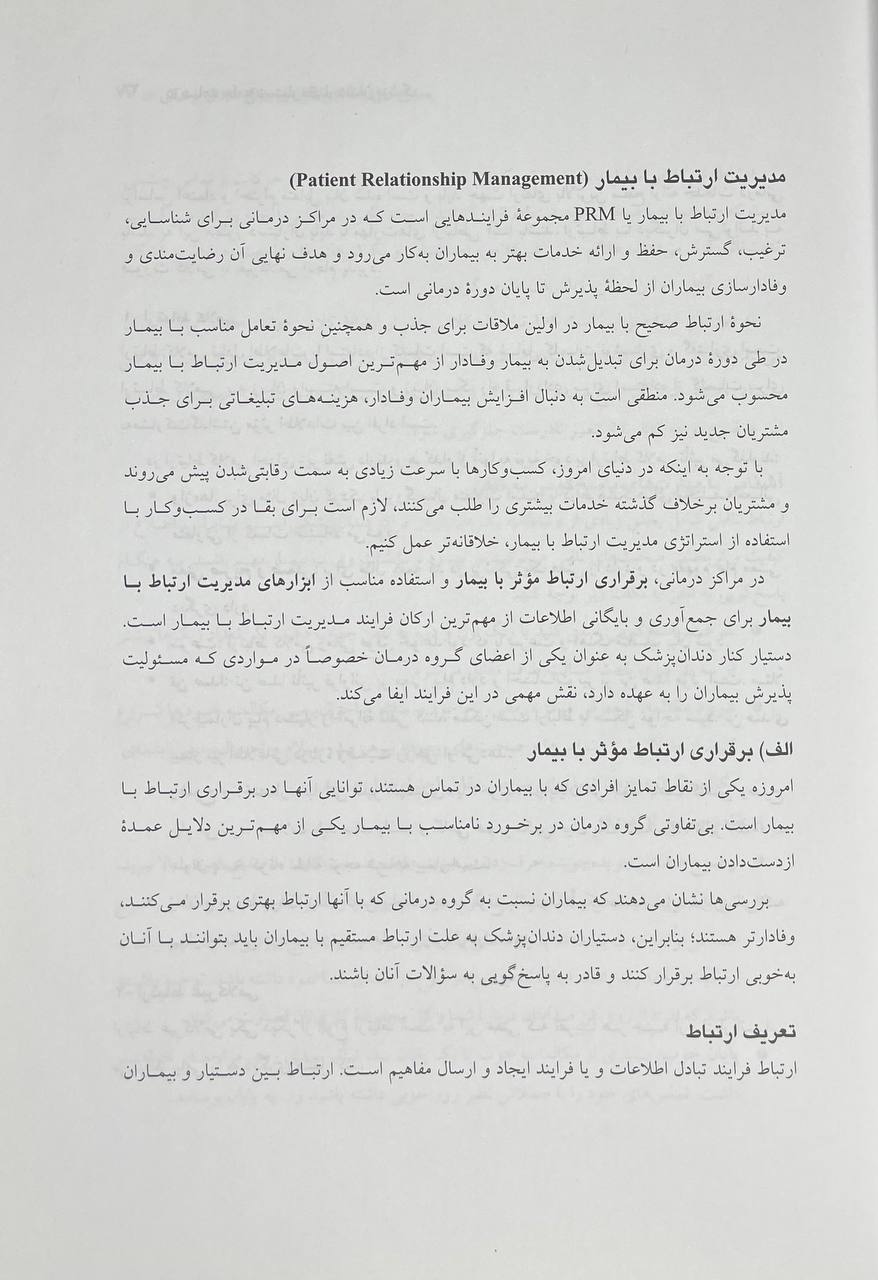 مدیریت ارتباط با بیمار (Patient Relationship Management)
مدیریت ارتباط با بیمار یا PRM مجموعهٔ فرایندهایی است که در مراکز درمانی برای شناسایی،
ترغیب، گسترش، حفظ و ارائه خدمات بهتر به بیماران به‌کار می‌رود و هدف نهایی آن رضایت‌مندی و
وفادارسازی بیماران از لحظهٔ پذیرش تا پایان دورهٔ درمانی است.
نحوهٔ ارتباط صحیح با بیمار در اولین ملاقات برای جذب و همچنین نحوهٔ تعامل مناسب با بیمار
در طی دورهٔ درمان برای تبدیل‌شدن به بیمار وفادار از مهم‌ترین اصول مدیریت ارتباط با بیمار
محسوب می‌شود. منطقی است به دنبال افزایش بیماران وفادار، هزینه‌های تبلیغاتی برای جذب
مشتریان جدید نیز کم می‌شود.
با توجه به اینکه در دنیای امروز، کسب‌وکارها با سرعت زیادی به سمت رقابتی‌شدن پیش می‌روند
و مشتریان برخلاف گذشته خدمات بیشتری را طلب می‌کنند، لازم است برای بقا در کسب‌وکار با
استفاده از استراتژی مدیریت ارتباط با بیمار، خلاقانه‌تر عمل کنیم.
در مراکز درمانی، برقراری ارتباط مؤثر با بیمار و استفاده مناسب از ابزارهای مدیریت ارتباط با
بیمار برای جمع‌آوری و بایگانی اطلاعات از مهم‌ترین ارکان فرایند مدیریت ارتباط با بیمار است.
دستیار کنار دندان‌پزشک به عنوان یکی از اعضای گروه درمان خصوصاً در مواردی که مسئولیت
پذیرش بیماران را به عهده دارد، نقش مهمی در این فرایند ایفا می‌کند.
الف) برقراری ارتباط مؤثر با بیمار
امروزه یکی از نقاط تمایز افرادی که با بیماران در تماس هستند، توانایی آنها در برقراری ارتباط با
بیمار است. بی‌تفاوتی گروه درمان در برخورد نامناسب با بیمار یکی از مهم‌ترین دلایل عمدهٔ
ازدست‌دادن بیماران است.
بررسی‌ها نشان می‌دهند که بیماران نسبت به گروه درمانی که با آنها ارتباط بهتری برقرار می‌کنند،
وفادارتر هستند؛ بنابراین، دستیاران دندان‌پزشک به علت ارتباط مستقیم با بیماران باید بتوانند با آنان
به‌خوبی ارتباط برقرار کنند و قادر به پاسخ‌گویی به سؤالات آنان باشند.
تعریف ارتباط
ارتباط فرایند تبادل اطلاعات و یا فرایند ایجاد و ارسال مفاهیم است. ارتباط بین دستیار و بیماران